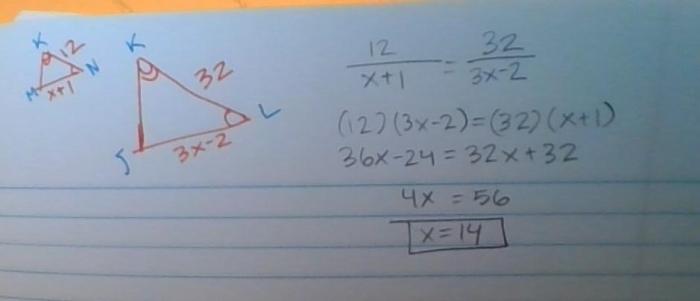 K
12
M
N
x+1
K
32
J
L
3x-2
12/(x+1) = 32/(3x-2)
(12)(3x-2)=(32)(x+1)
36x-24=32x+32
4x = 56
x=14